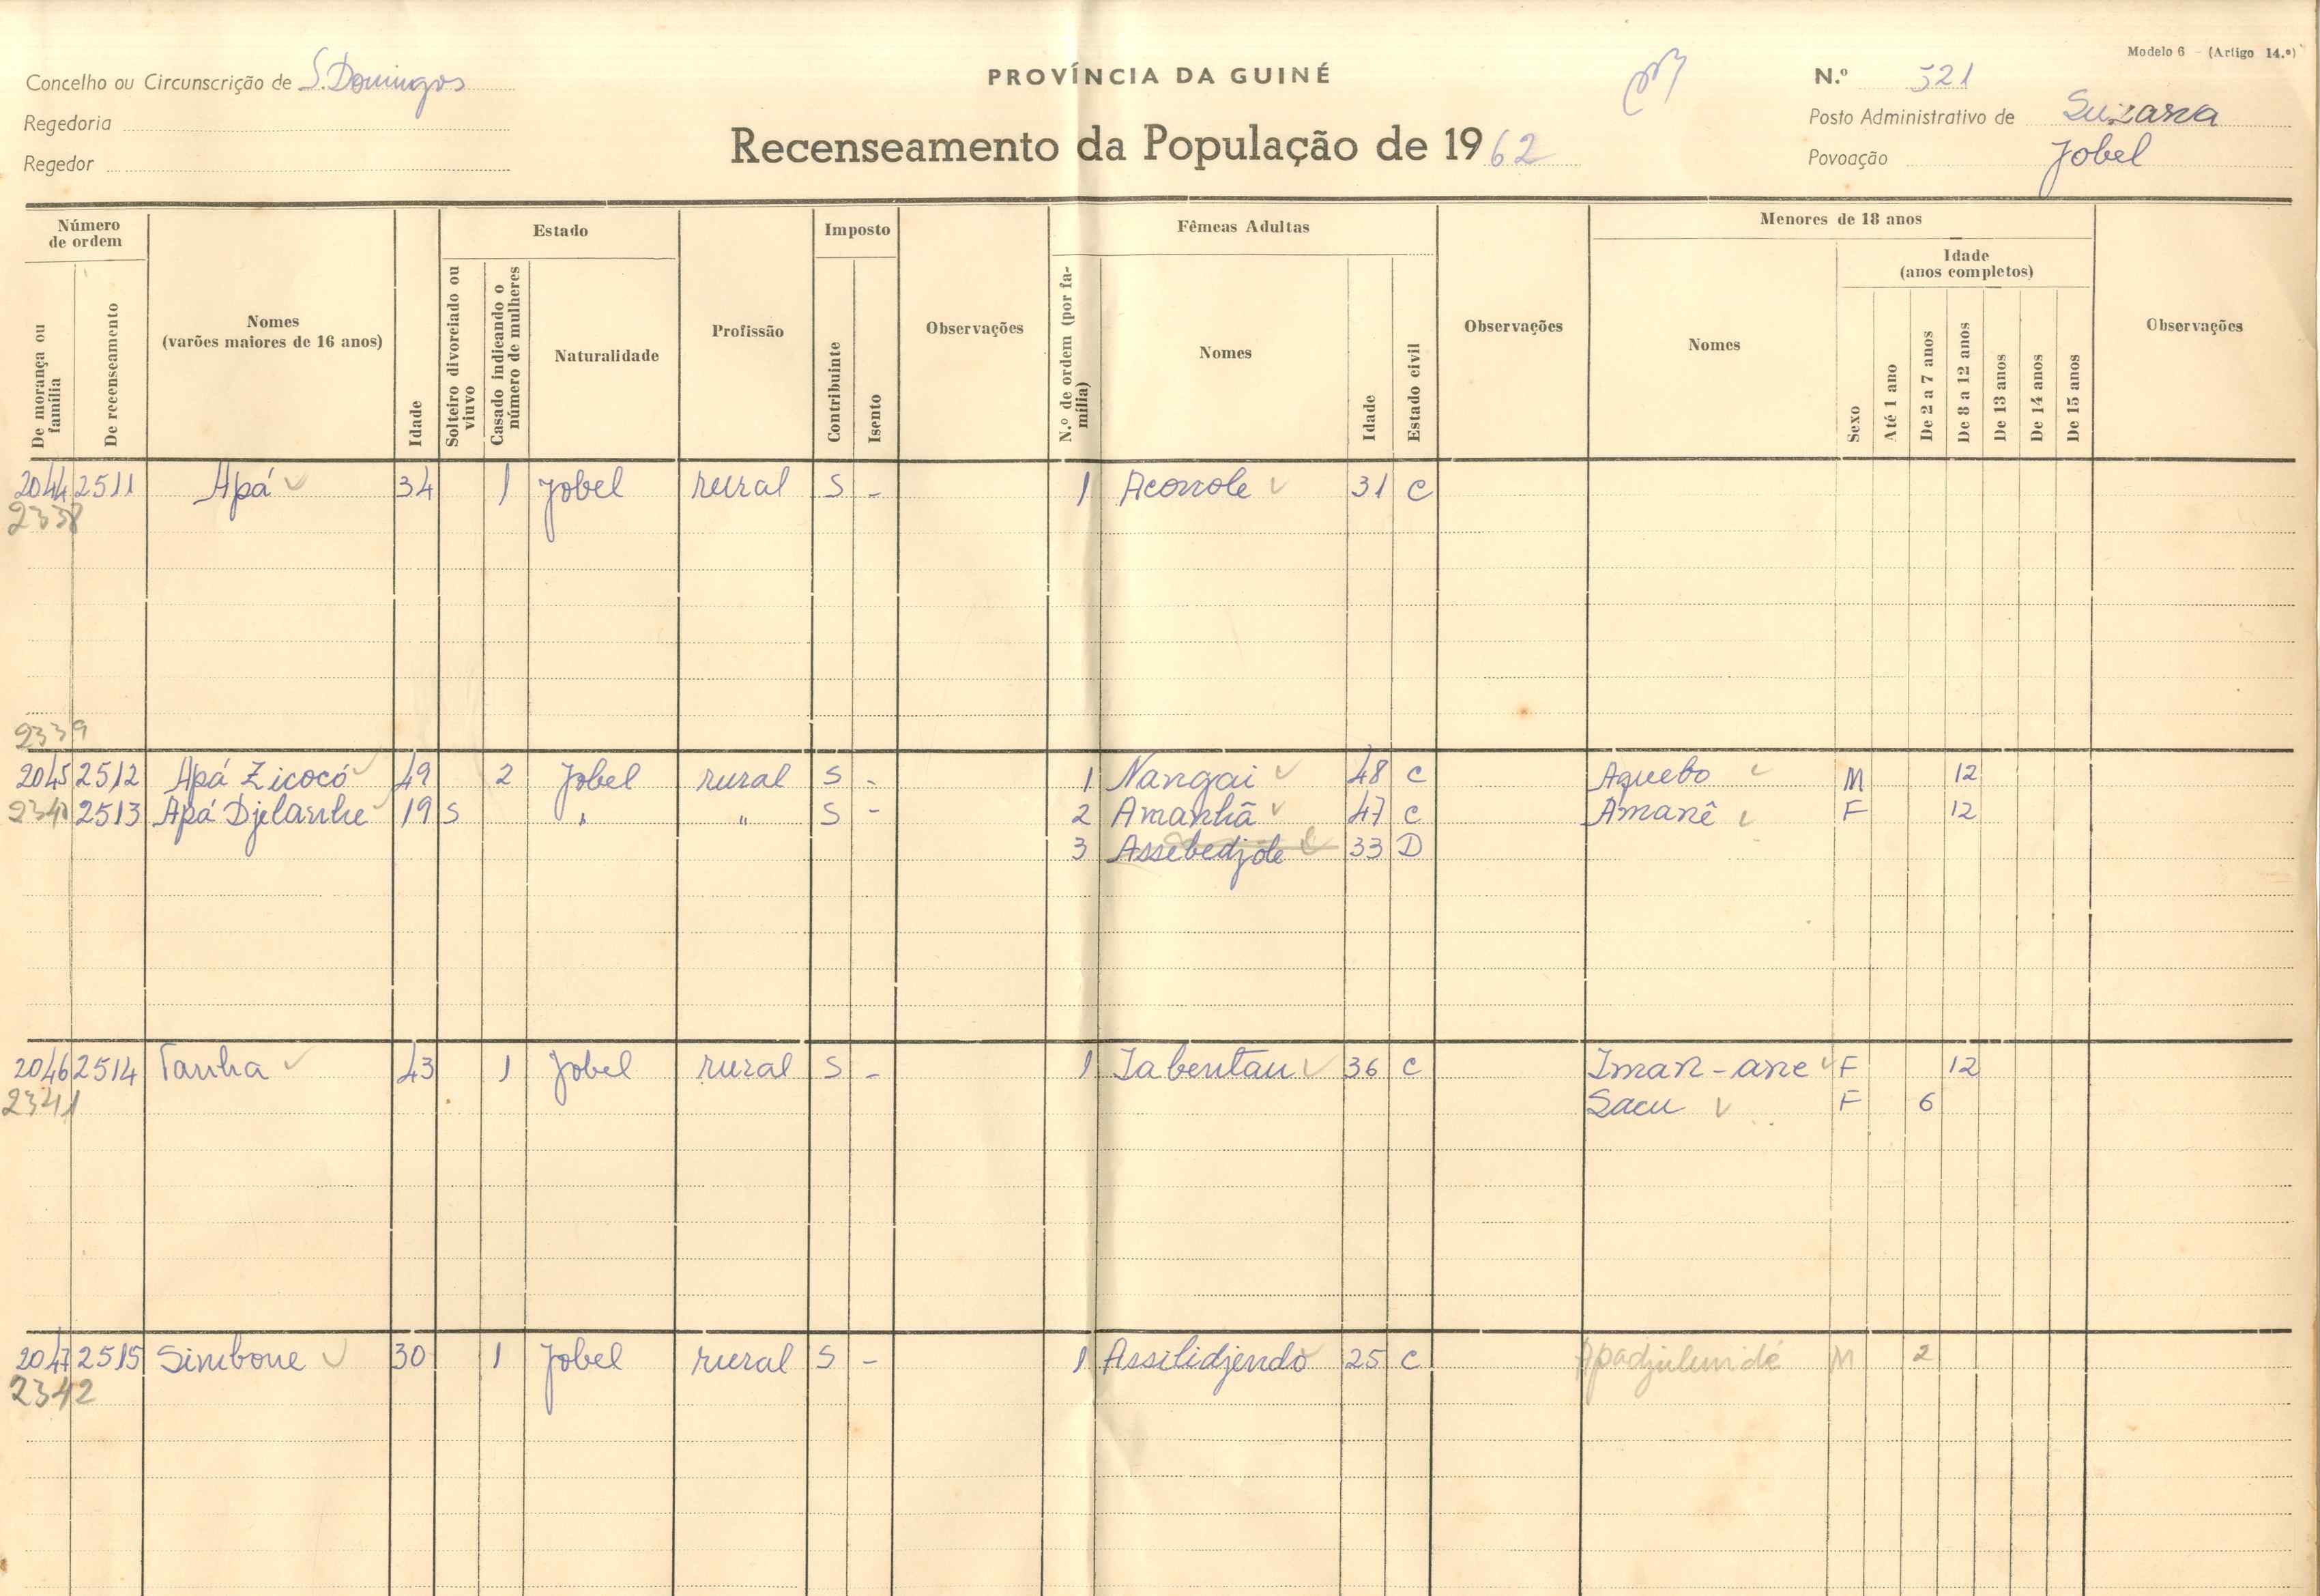 Modelo 6 - (Artigo 14.º)
Concelho ou Circunscrição de S. Domingos
PROVÍNCIA DA GUINÉ
N.º 521
Regedoria
Posto Administrativo de Suzana
Regedor
Recenseamento da População de 1962
Povoação Jobel
Número de ordem
De morança ou família
De recenseamento
Nomes (varões maiores de 16 anos)
Idade
Estado
Solteiro divorciado ou viuvo
Casado indicando o número de mulheres
Naturalidade
Profissão
Imposto
Contribuinte
Isento
Observações
N.º de ordem (por família)
Fêmeas Adultas
Nomes
Idade
Estado civil
Observações
Menores de 18 anos
Nomes
Sexo
Idade (anos completos)
Até 1 ano
De 2 a 7 anos
De 8 a 12 anos
De 13 anos
De 14 anos
De 15 anos
Observações
2044 2511 Apá 34 1 Jobel rural S - 1 Aconole 31 C
2338
2339
2045 2512 Apá Zicocó 49 2 Jobel rural S - 1 Nangai 48 C Aquebo M 12
2340 2513 Apá Djelanhe 19 S " " S - 2 Amanhã 47 C Amanê F 12
3 Assebedjole 33 D
2046 2514 Tanha 43 1 Jobel rural S - 1 Iabentau 36 C Iman-ane F 12
2341 Sacu F 6
2047 2515 Simbone 30 1 Jobel rural S - 1 Assilidjendo 25 C Apadjulundé M 2
2342